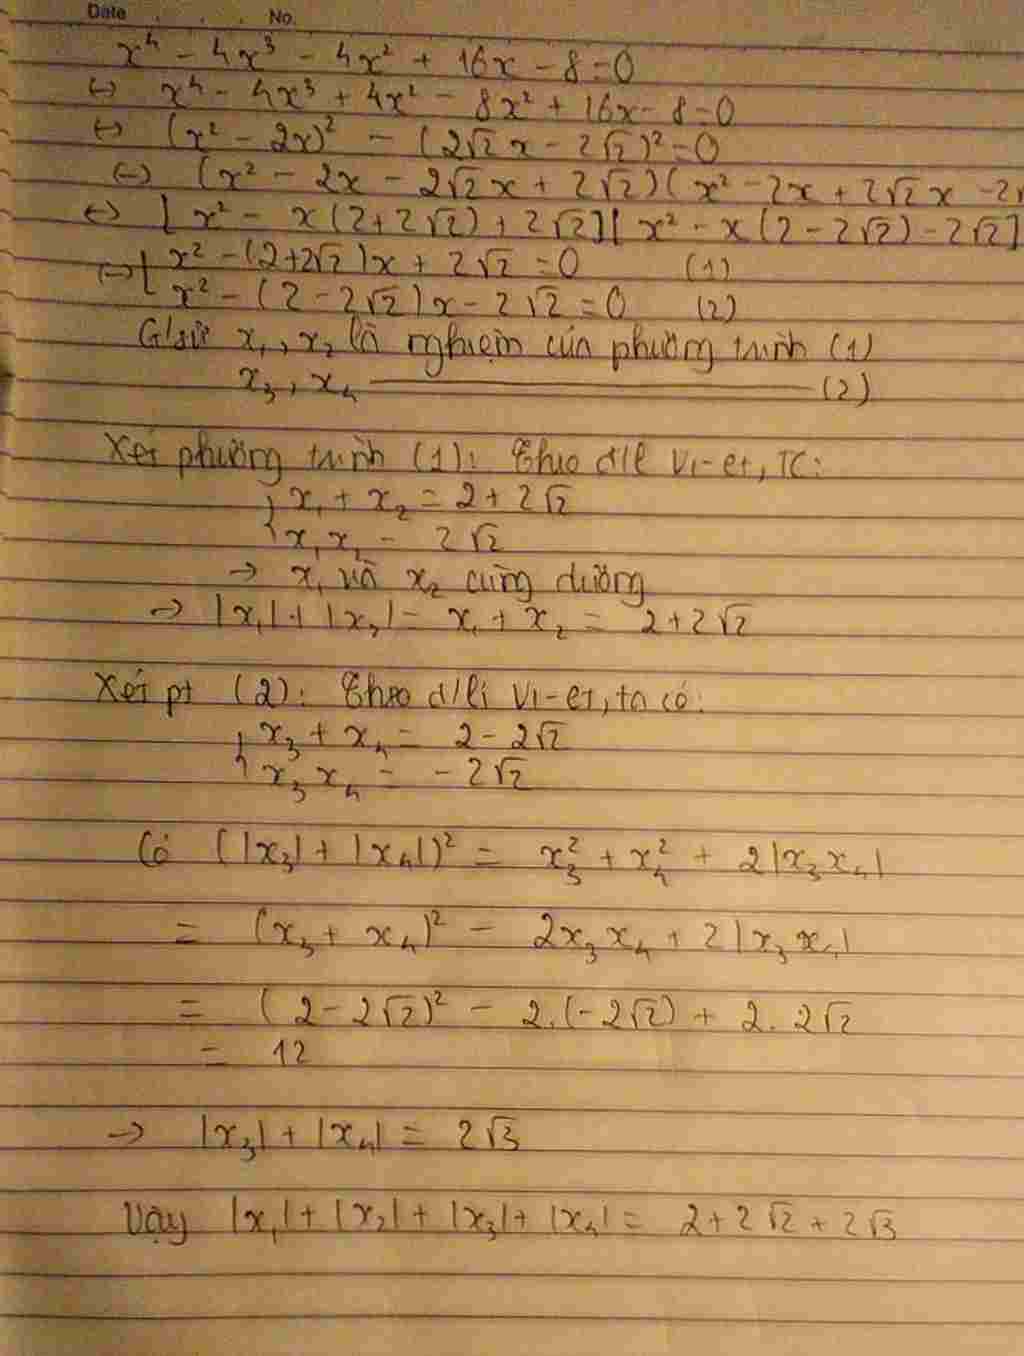 Date . . . No.
x⁴ - 4x³ - 4x² + 16x - 8 = 0
↔ x⁴ - 4x³ + 4x² - 8x² + 16x - 8 = 0
↔ (x² - 2x)² - (2√2x - 2√2)² = 0
↔ (x² - 2x - 2√2x + 2√2)(x² - 2x + 2√2x - 2
↔ [x² - x(2+2√2) + 2√2][x² - x(2-2√2) - 2√2]
↔ [ x² - (2+2√2)x + 2√2 = 0 (1)
x² - (2-2√2)x - 2√2 = 0 (2)
G/sử x₁, x₂ là nghiệm của phương trình (1)
x₃, x₄ ———————— (2)
Xét phương trình (1): Theo đ/l Vi-et, TC:
{ x₁ + x₂ = 2 + 2√2
x₁x₂ = 2√2
→ x₁ và x₂ cùng dương
→ |x₁| + |x₂| = x₁ + x₂ = 2 + 2√2
Xét pt (2): Theo đ/lí Vi-et, ta có:
{ x₃ + x₄ = 2 - 2√2
x₃x₄ = -2√2
Có (|x₃| + |x₄|)² = x₃² + x₄² + 2|x₃x₄|
= (x₃ + x₄)² - 2x₃x₄ + 2|x₃x₄|
= (2 - 2√2)² - 2.(-2√2) + 2.2√2
= 12
→ |x₃| + |x₄| = 2√3
Vậy |x₁| + |x₂| + |x₃| + |x₄| = 2 + 2√2 + 2√3